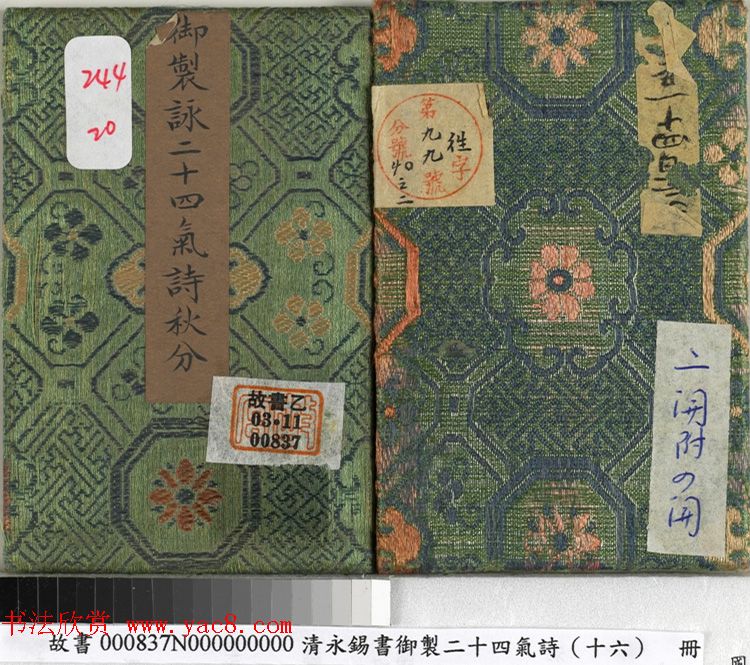 御製詠二十四氣詩秋分
244
20
故書乙
03·11
00837
第九九號
分號
往字
二開附の開
书法欣赏 www.yac8.com
故書 000837N000000000 清永錫書御製二十四氣詩（十六） 冊